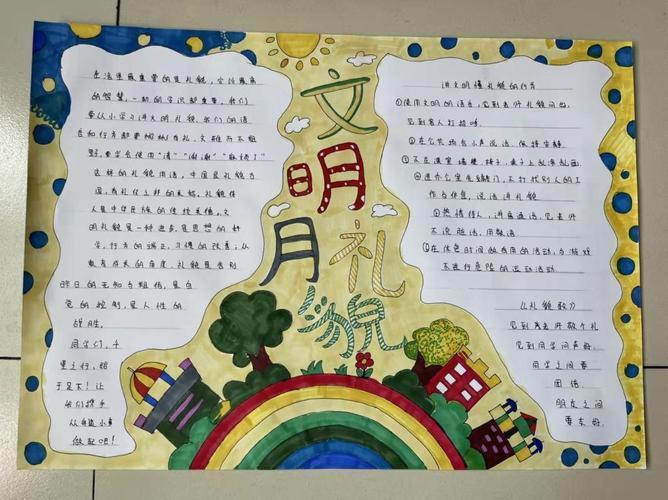 文明
月礼
貌
生活里最重要的是礼貌，它比最高
的智慧，一切的学识都重要。我们
要从小学习讲文明礼貌，我们的语
言和行为都要
要学会使用“请”“谢谢”
这样的礼貌用语，中国是礼貌古
国，有礼仪之邦的美称，礼貌待
人是中华民族的传统美德。文
明礼貌是一种进步，是思想的
学，行为的端正，习惯的改善，从
教育成长的角度，礼貌是告别
昨日的无知与粗俗，是自
觉的控制，是人性的
战胜。
同学们，千
里之行，始
于足下！让
我们携手
从身边小事
做起吧！
讲文明懂礼貌的行为
①使用文明的语言，见到老师礼貌问好，
见到客人打招呼。
②在公共场合小声说话，保持安静
③不在课堂墙壁、椅子、桌子上乱涂乱画
④进办公室先敲门，不打扰别人的工
作与休息，说话讲礼貌
⑤热情待人，讲普通话，
不说脏话，用敬语
⑥在休息时间做有用的活动，与游戏
不进行危险的运动活动
《礼貌歌》
见到老师敬个礼
见到同学问声好
同学之间要
团结
朋友之间
要友好。